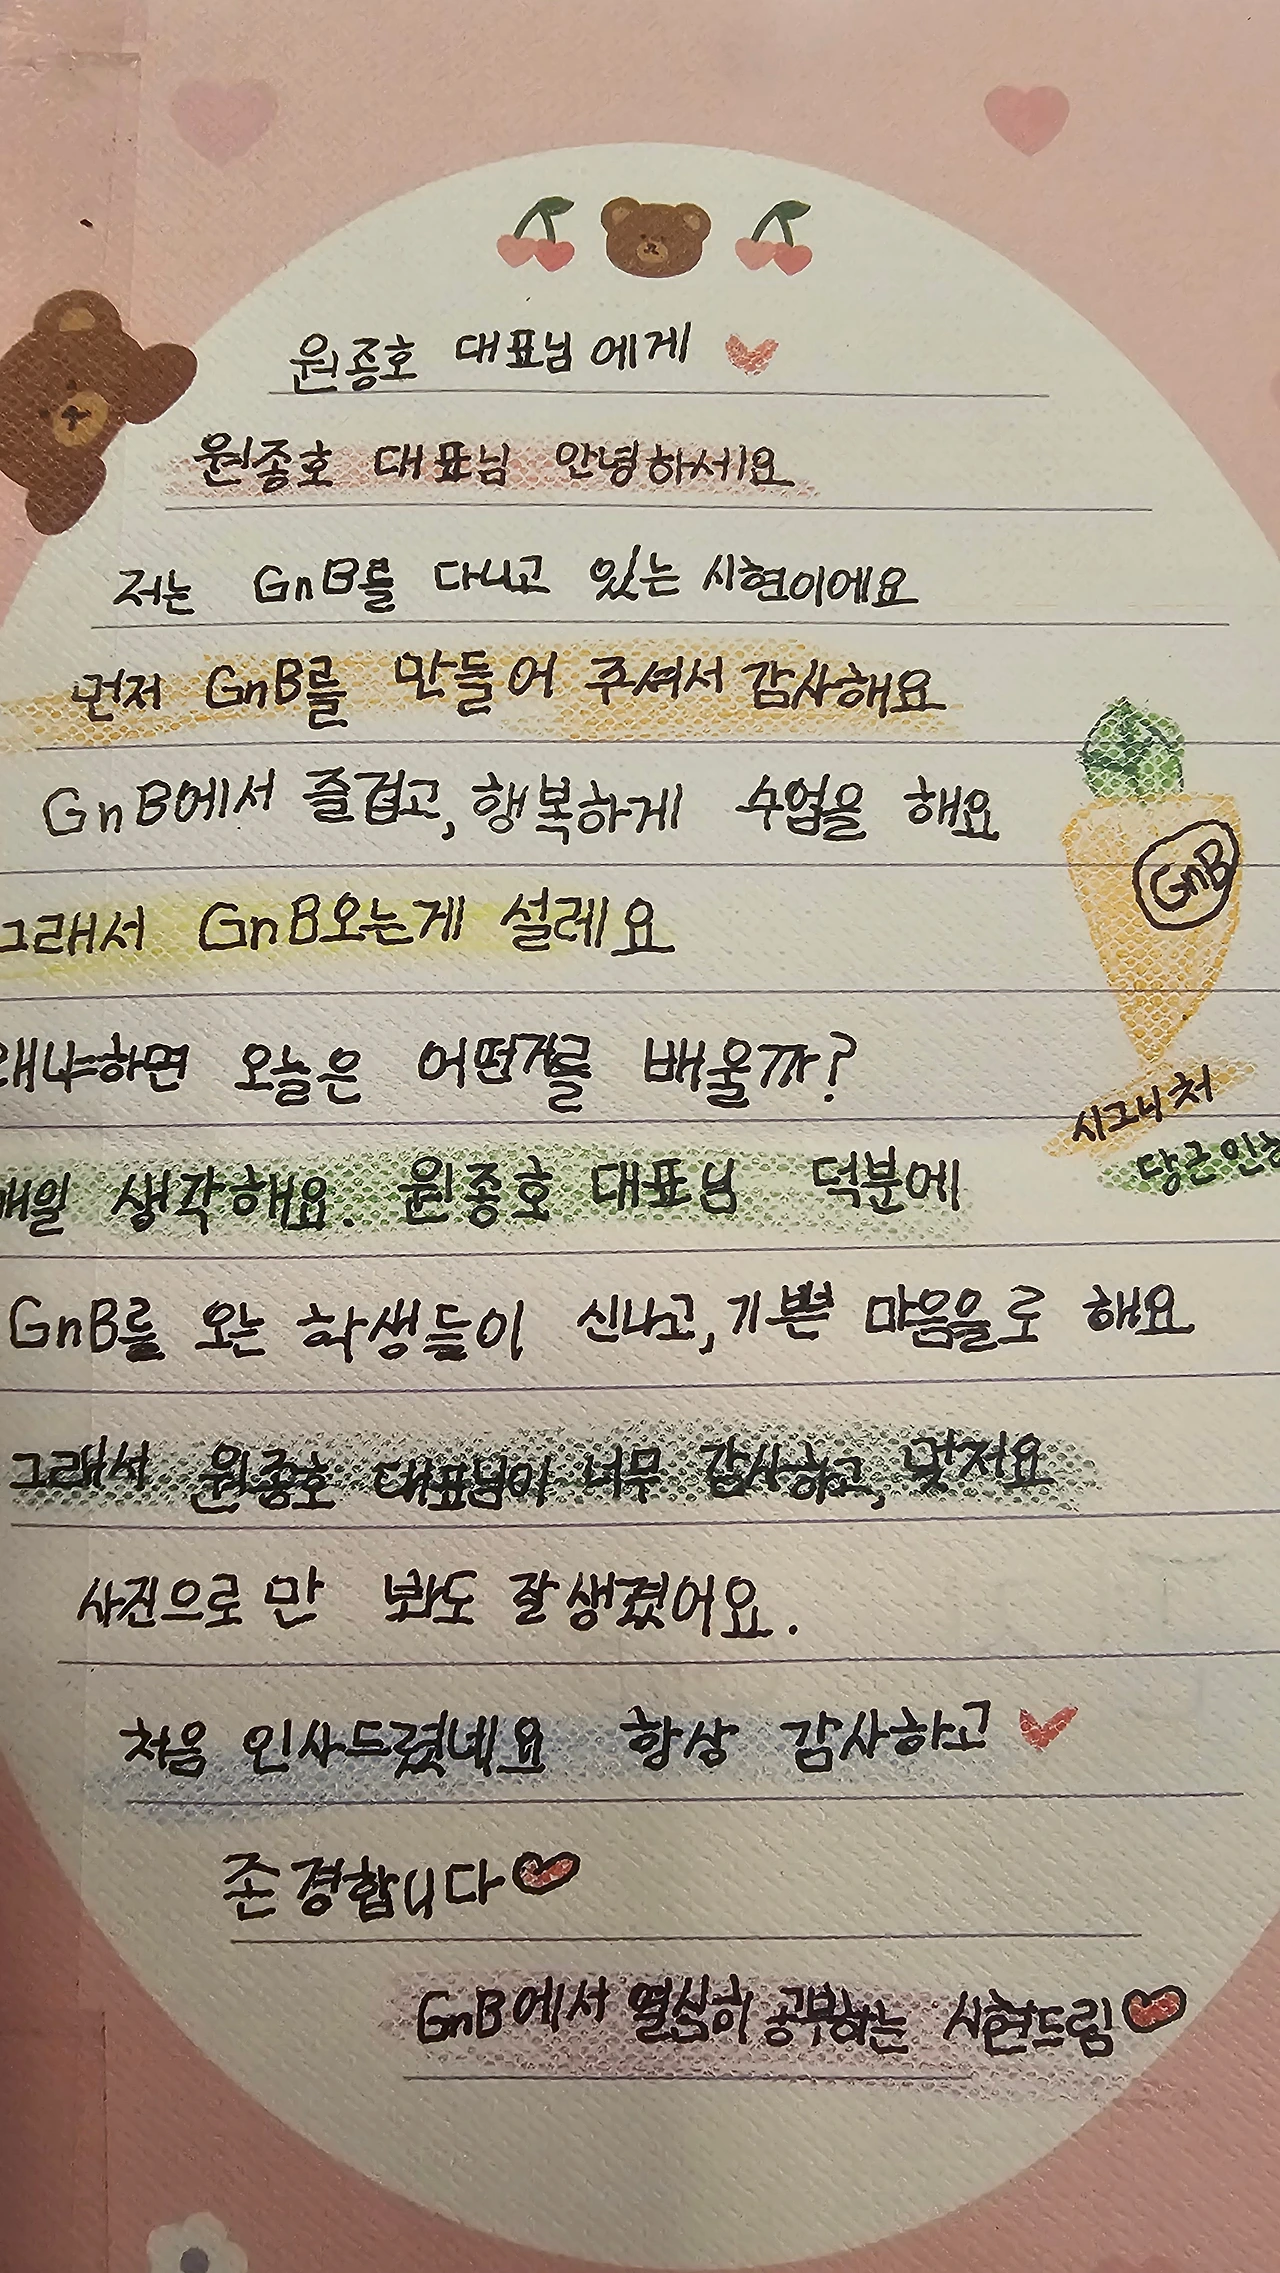 원종호 대표님에게
원종호 대표님 안녕하세요
저는 GnB를 다니고 있는 시현이에요
먼저 GnB를 만들어 주셔서 감사해요
GnB에서 즐겁고, 행복하게 수업을 해요
그래서 GnB오는게 설레요
왜냐하면 오늘은 어떤거를 배울까?
매일 생각해요. 원종호 대표님 덕분에
GnB를 오는 학생들이 신나고, 기쁜 마음을로 해요
그래서 원종호 대표님이 너무 감사하고, 멋저요
사진으로만 봐도 잘생겼어요.
처음 인사드렸네요 항상 감사하고
존경합니다
GnB에서 열심히 공부하는 시현드림
GnB
시그니처
당근인